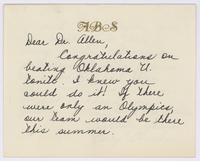 ABS
Dear Dr. Allen,
Congratulations on
beating Oklahoma U.
tonite. I knew you
could do it! If there
were only an Olympics,
our team would be there
this summer.